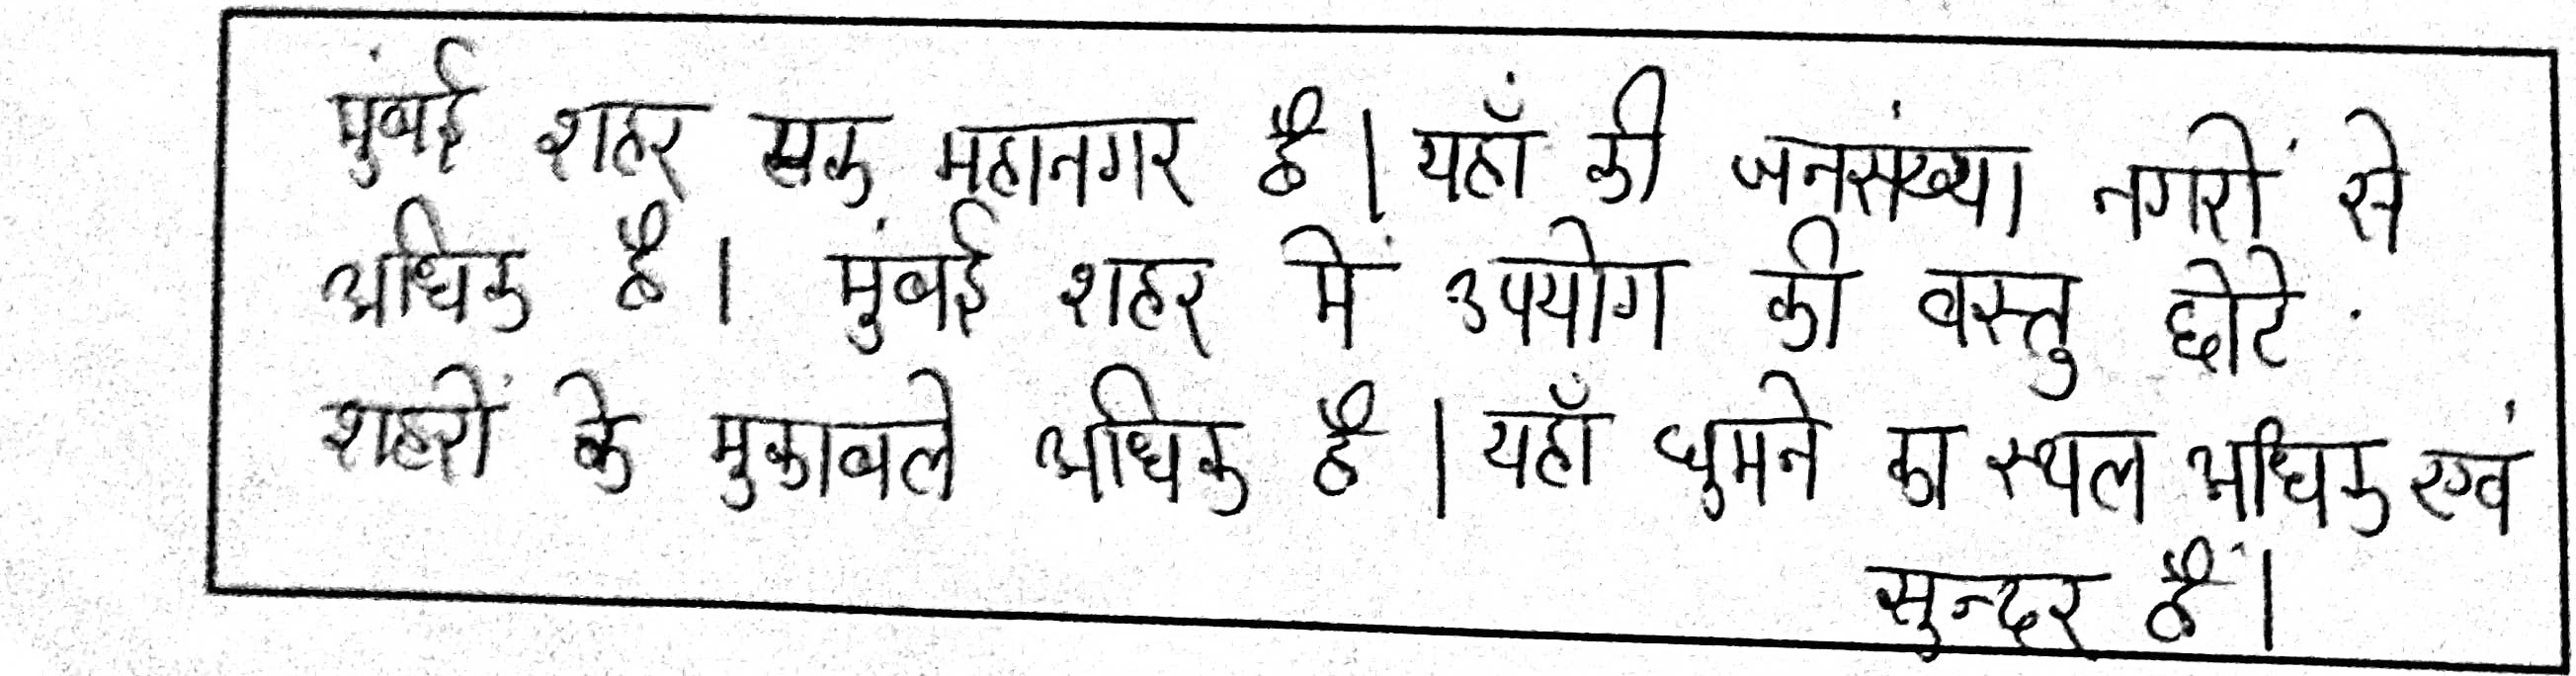 मुंबई शहर एक महानगर है। यहाँ की जनसंख्या नगरों से
अधिक है। मुंबई शहर में उपयोग की वस्तु छोटे
शहरों के मुकाबले अधिक है। यहाँ घुमने का स्थल अधिक एवं
सुन्दर हैं।